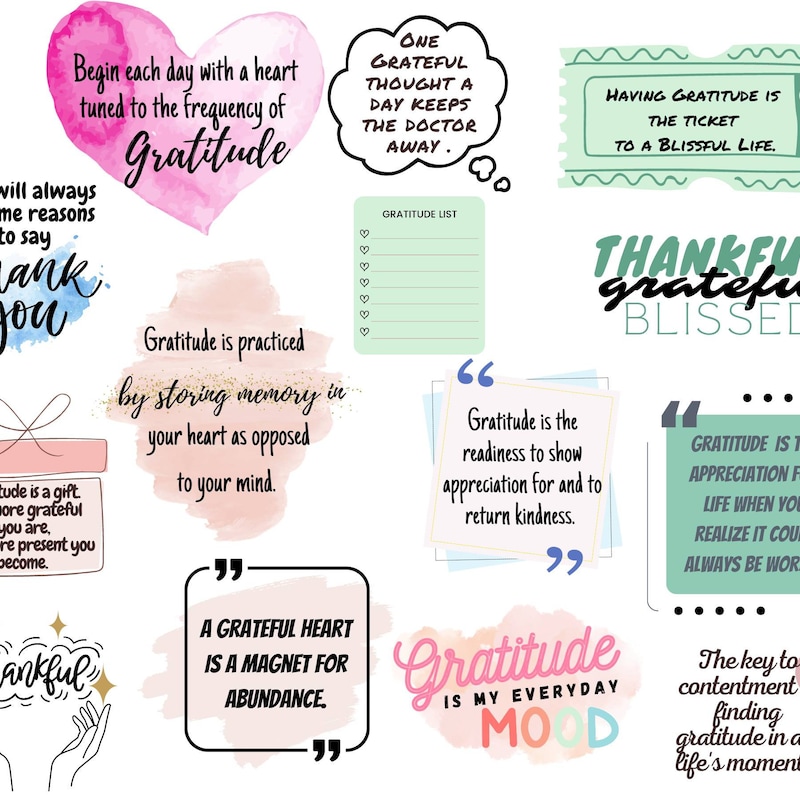 Begin each day with a heart
tuned to the frequency of
Gratitude
ONE
GRATEFUL
THOUGHT A
DAY KEEPS
THE DOCTOR
AWAY .
HAVING GRATITUDE IS
THE TICKET
TO A BLISSFUL LIFE.
will always
me reasons
to say
you
GRATITUDE LIST
THANKFU
grateful
BLISSED
Gratitude is practiced
by storing memory in
your heart as opposed
to your mind.
Gratitude is the
readiness to show
appreciation for and to
return kindness.
GRATITUDE IS T
APPRECIATION F
LIFE WHEN YOU
REALIZE IT COU
ALWAYS BE WOR
tude is a gift.
ore grateful
you are,
re present you
become.
A GRATEFUL HEART
IS A MAGNET FOR
ABUNDANCE.
Gratitude
IS MY EVERYDAY
MOOD
ankful
The key to
contentment
finding
gratitude in a
life's moment